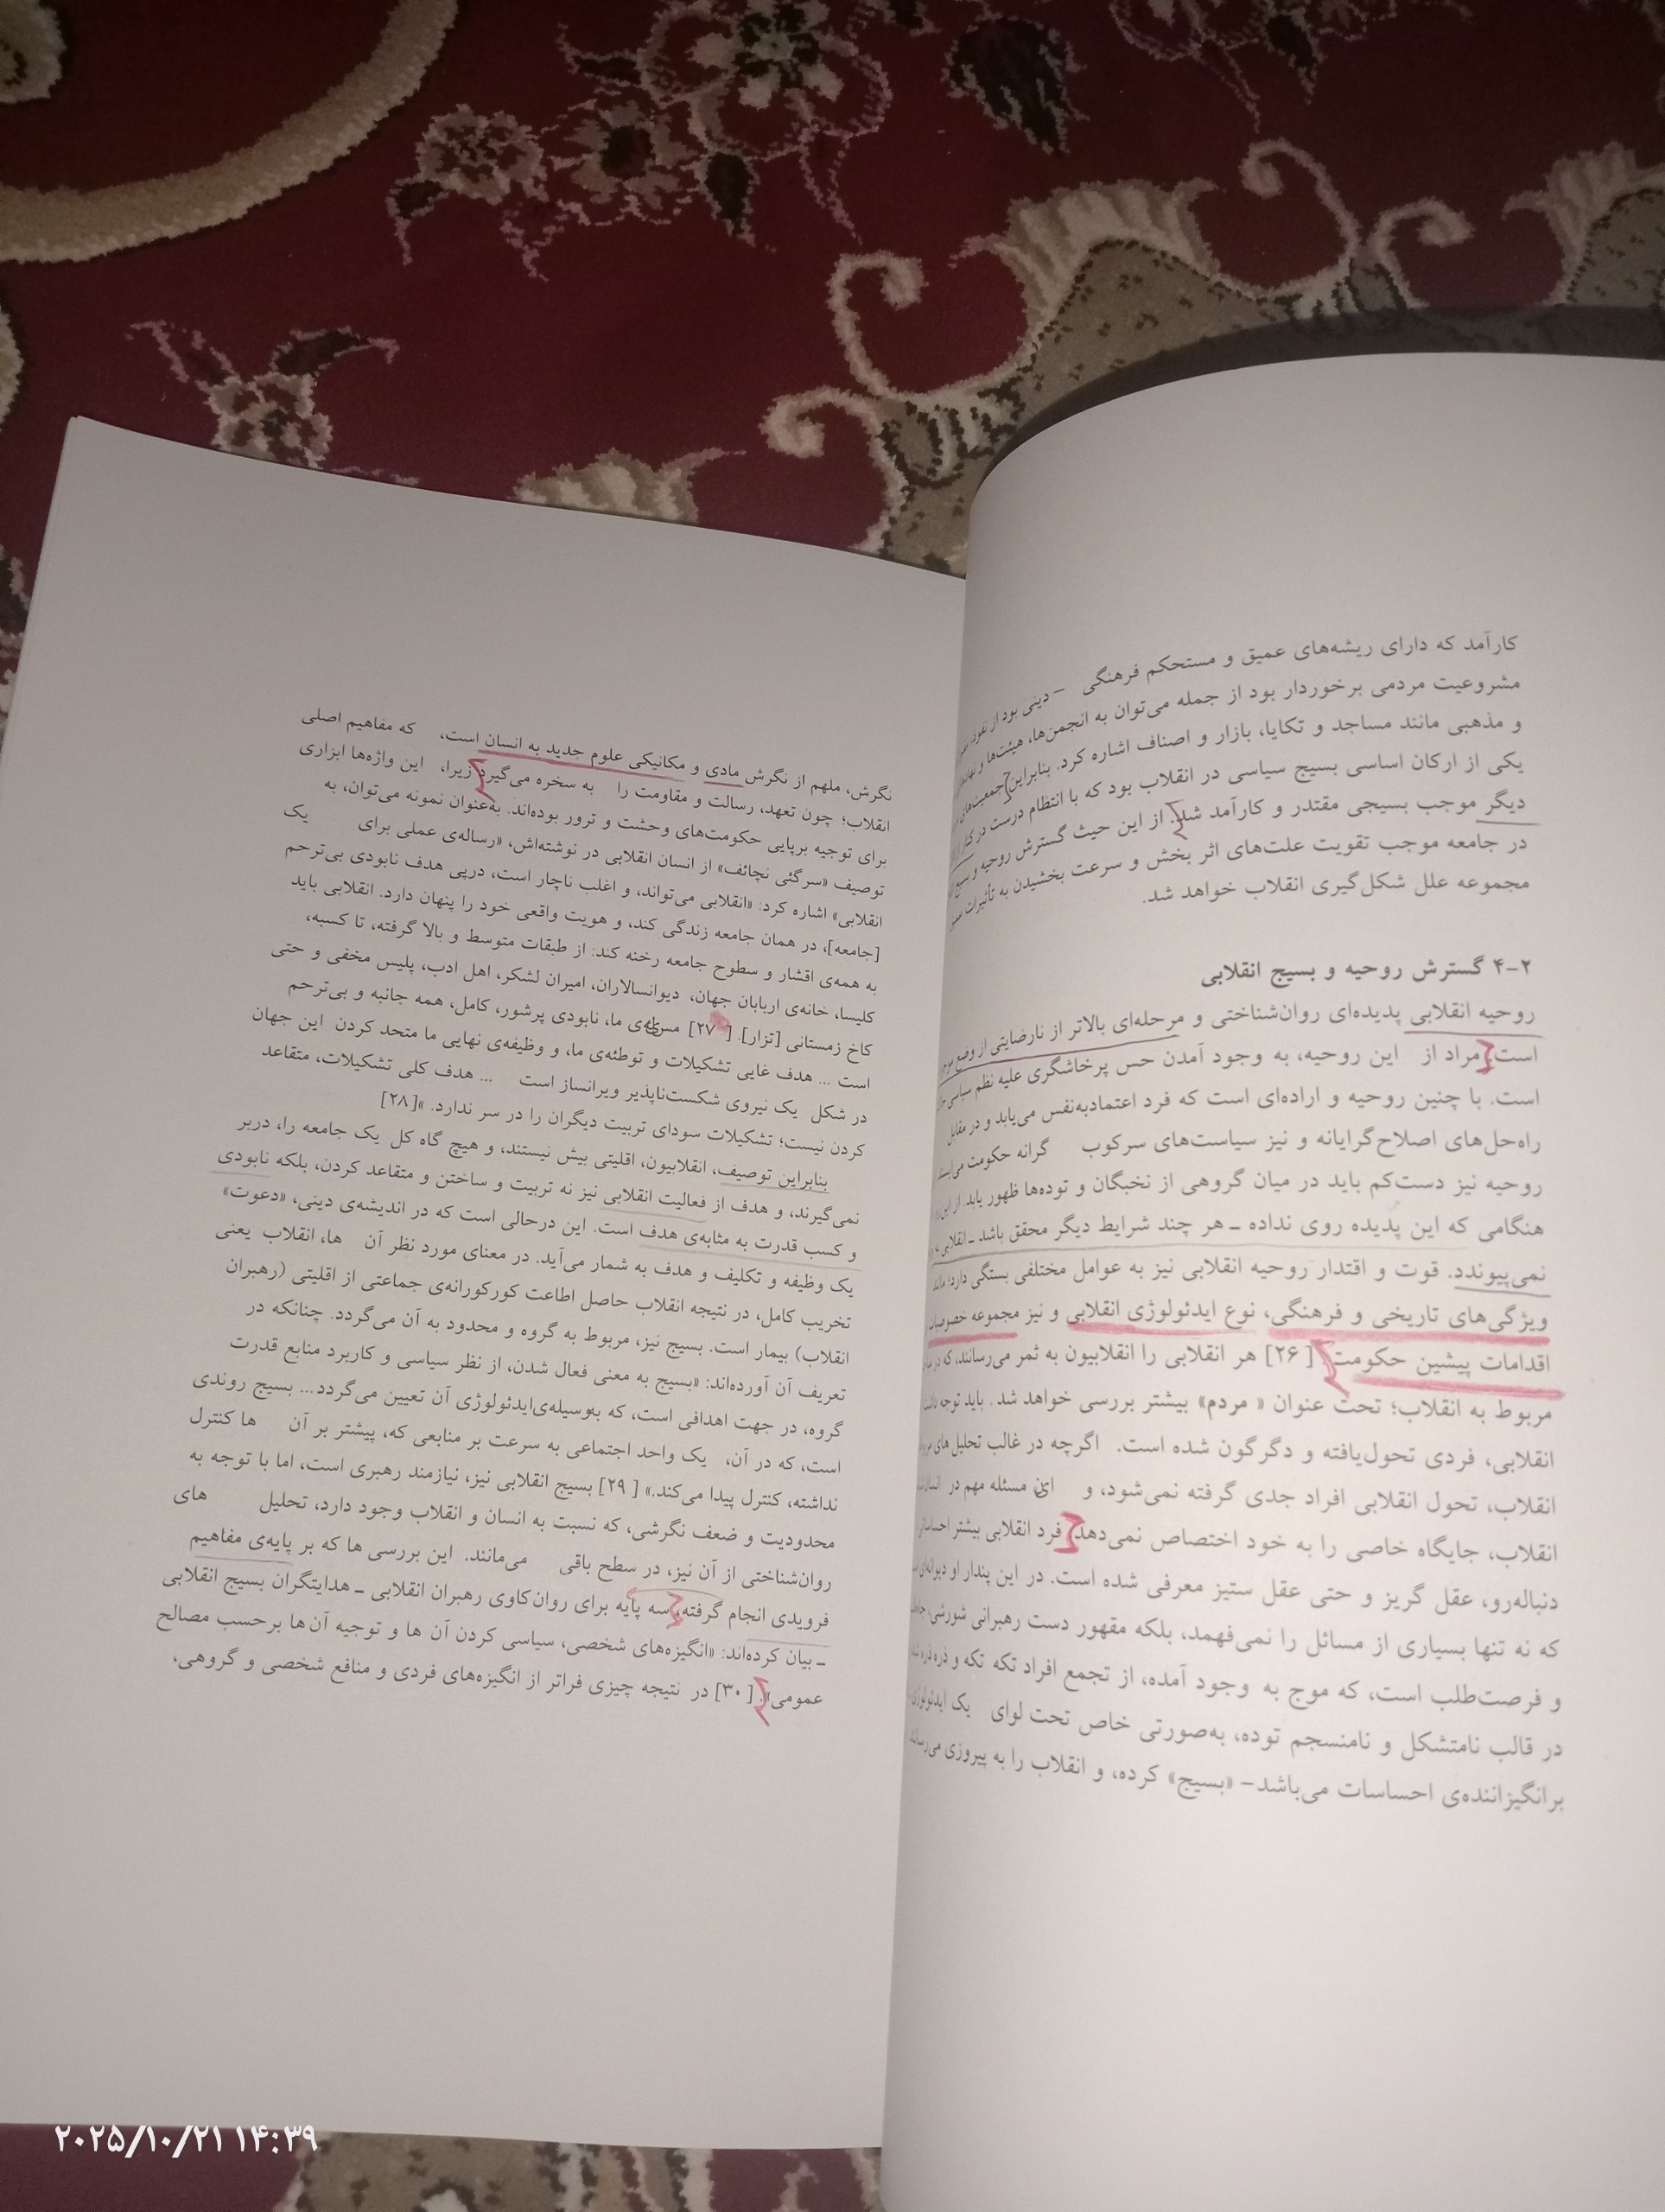 کارآمد که دارای ریشه‌های عمیق و مستحکم فرهنگی – دینی بود از نفوذ
مشروعیت مردمی برخوردار بود از جمله می‌توان به انجمن‌ها، هیئت‌ها و نهادهای
و مذهبی مانند مساجد و تکایا، بازار و اصناف اشاره کرد. بنابراین جمعیت‌های
یکی از ارکان اساسی بسیج سیاسی در انقلاب بود که با انتظام درست در کنار
دیگر موجب بسیجی مقتدر و کارآمد شد. از این حیث گسترش روحیه و بسیج
در جامعه موجب تقویت علت‌های اثر بخش و سرعت بخشیدن به تأثیرات
مجموعه علل شکل‌گیری انقلاب خواهد شد.
۲-۴ گسترش روحیه و بسیج انقلابی
روحیه انقلابی پدیده‌ای روان‌شناختی و مرحله‌ای بالاتر از نارضایتی از وضع موجود
است. مراد از این روحیه، به وجود آمدن حس پرخاشگری علیه نظم سیاسی
است. با چنین روحیه و اراده‌ای است که فرد اعتمادبه‌نفس می‌یابد و در مقابل
راه‌حل‌های اصلاح‌گرایانه و نیز سیاست‌های سرکوب گرانه حکومت می‌ایستد
روحیه نیز دست‌کم باید در میان گروهی از نخبگان و توده‌ها ظهور یابد. از این‌رو
هنگامی که این پدیده روی نداده ــ هر چند شرایط دیگر محقق باشد ــ انقلابی
نمی‌پیوندد. قوت و اقتدار روحیه انقلابی نیز به عوامل مختلفی بستگی دارد؛ مانند
ویژگی‌های تاریخی و فرهنگی، نوع ایدئولوژی انقلابی و نیز مجموعه خصوصیات
اقدامات پیشین حکومت. [۲۶] هر انقلابی را انقلابیون به ثمر می‌رسانند، که در
مربوط به انقلاب؛ تحت عنوان « مردم» بیشتر بررسی خواهد شد. باید توجه داشت
انقلابی، فردی تحول‌یافته و دگرگون شده است. اگرچه در غالب تحلیل های
انقلاب، تحول انقلابی افراد جدی گرفته نمی‌شود، و این مسئله مهم در
انقلاب، جایگاه خاصی را به خود اختصاص نمی‌دهد. فرد انقلابی بیشتر احساساتی
دنباله‌رو، عقل گریز و حتی عقل ستیز معرفی شده است. در این پندار او دیوانه‌ای
که نه تنها بسیاری از مسائل را نمی‌فهمد، بلکه مقهور دست رهبرانی شورشی،
و فرصت‌طلب است، که موج به وجود آمده، از تجمع افراد تکه تکه و ذره ذره
در قالب نامتشکل و نامنسجم توده، به‌صورتی خاص تحت لوای یک ایدئولوژی
برانگیزاننده‌ی احساسات می‌باشد– «بسیج» کرده، و انقلاب را به پیروزی می‌رساند
نگرش، ملهم از نگرش مادی و مکانیکی علوم جدید به انسان است، که مفاهیم اصلی
انقلاب؛ چون تعهد، رسالت و مقاومت را به سخره می‌گیرد زیرا، این واژه‌ها ابزاری
برای توجیه برپایی حکومت‌های وحشت و ترور بوده‌اند. به‌عنوان نمونه می‌توان، به
توصیف «سرگئی نچائف» از انسان انقلابی در نوشته‌اش، «رساله‌ی عملی برای یک
انقلابی» اشاره کرد: «انقلابی می‌تواند، و اغلب ناچار است، درپی هدف نابودی بی‌ترحم
[جامعه]، در همان جامعه زندگی کند، و هویت واقعی خود را پنهان دارد. انقلابی باید
به همه‌ی اقشار و سطوح جامعه رخنه کند: از طبقات متوسط و بالا گرفته، تا کسبه،
کلیسا، خانه‌ی اربابان جهان، دیوانسالاران، امیران لشکر، اهل ادب، پلیس مخفی و حتی
کاخ زمستانی [تزار]. [۲۷] مسئله‌ی ما، نابودی پرشور، کامل، همه جانبه و بی‌ترحم
است ... هدف غایی تشکیلات و توطئه‌ی ما، و وظیفه‌ی نهایی ما متحد کردن این جهان
در شکل یک نیروی شکست‌ناپذیر ویرانساز است ... هدف کلی تشکیلات، متقاعد
کردن نیست؛ تشکیلات سودای تربیت دیگران را در سر ندارد. »[۲۸]
بنابراین توصیف، انقلابیون، اقلیتی بیش نیستند، و هیچ گاه کل یک جامعه را، دربر
نمی‌گیرند، و هدف از فعالیت انقلابی نیز نه تربیت و ساختن و متقاعد کردن، بلکه نابودی
و کسب قدرت به مثابه‌ی هدف است. این درحالی است که در اندیشه‌ی دینی، «دعوت»
یک وظیفه و تکلیف و هدف به شمار می‌آید. در معنای مورد نظر آن ها، انقلاب یعنی
تخریب کامل، در نتیجه انقلاب حاصل اطاعت کورکورانه‌ی جماعتی از اقلیتی (رهبران
انقلاب) بیمار است. بسیج نیز، مربوط به گروه و محدود به آن می‌گردد. چنانکه در
تعریف آن آورده‌اند: «بسیج به معنی فعال شدن، از نظر سیاسی و کاربرد منابع قدرت
گروه، در جهت اهدافی است، که به‌وسیله‌ی‌ایدئولوژی آن تعیین می‌گردد... بسیج روندی
است، که در آن، یک واحد اجتماعی به سرعت بر منابعی که، پیشتر بر آن ها کنترل
نداشته، کنترل پیدا می‌کند.» [۲۹] بسیج انقلابی نیز، نیازمند رهبری است، اما با توجه به
محدودیت و ضعف نگرشی، که نسبت به انسان و انقلاب وجود دارد، تحلیل های
روان‌شناختی از آن نیز، در سطح باقی می‌مانند. این بررسی ها که بر پایه‌ی مفاهیم
فرویدی انجام گرفته، سه پایه برای روان‌کاوی رهبران انقلابی ــ هدایتگران بسیج انقلابی
ــ بیان کرده‌اند: «انگیزه‌های شخصی، سیاسی کردن آن ها و توجیه آن‌ها برحسب مصالح
عمومی». [۳۰] در نتیجه چیزی فراتر از انگیزه‌های فردی و منافع شخصی و گروهی،
۲۰۲۵/۱۰/۲۱ ۱۴:۳۹